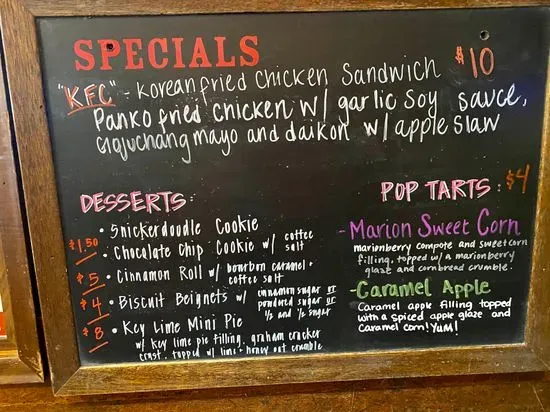 SPECIALS
"KFC" - Korean fried chicken Sandwich $10
Panko fried chicken w/ garlic soy sauce,
Gojuchang mayo and daikon w/ apple slaw
DESSERTS:
• Snickerdoodle Cookie
$1.50 • Chocolate Chip Cookie w/ coffee salt
$5 • Cinnamon Roll w/ bourbon caramel + coffee salt
$4 • Biscuit Beignets w/ cinnamon sugar or powdered sugar or ½ and ½ sugar
$8 • Key Lime Mini Pie
w/ key lime pie filling, graham cracker
crust, topped w/ lime + honey oat crumble
POP TARTS: $4
-Marion Sweet Corn
marionberry compote and sweet corn
filling, topped w/ a marionberry
glaze and cornbread crumble.
-Caramel Apple
Caramel apple filling topped
with a spiced apple glaze and
Caramel corn! YUM!